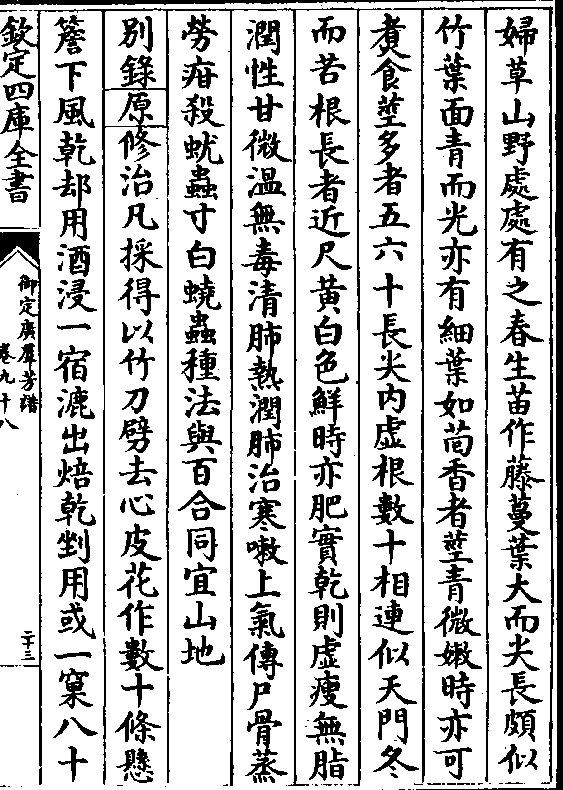 婦草山野處處有之春生苗作藤蔓葉大而尖長頗似
竹葉面青而光亦有細葉如茴香者莖青微嫩時亦可
煮食莖多者五六十長尖内虚根數十相連似天門冬
而苦根長者近尺黄白色鮮時亦肥實乾則虚瘦無脂
潤性甘微温無毒清肺熱潤肺治寒嗽上氣傳尸骨蒸
勞疳殺蚘蟲寸白蟯蟲種法與百合同宜山地
别錄原修治凡採得以竹刀劈去心皮花作數十條懸
簷下風乾却用酒浸一宿漉出焙乾剉用或一窠八十
欽定四庫全書
御定廣羣芳譜
卷九十八
二十三